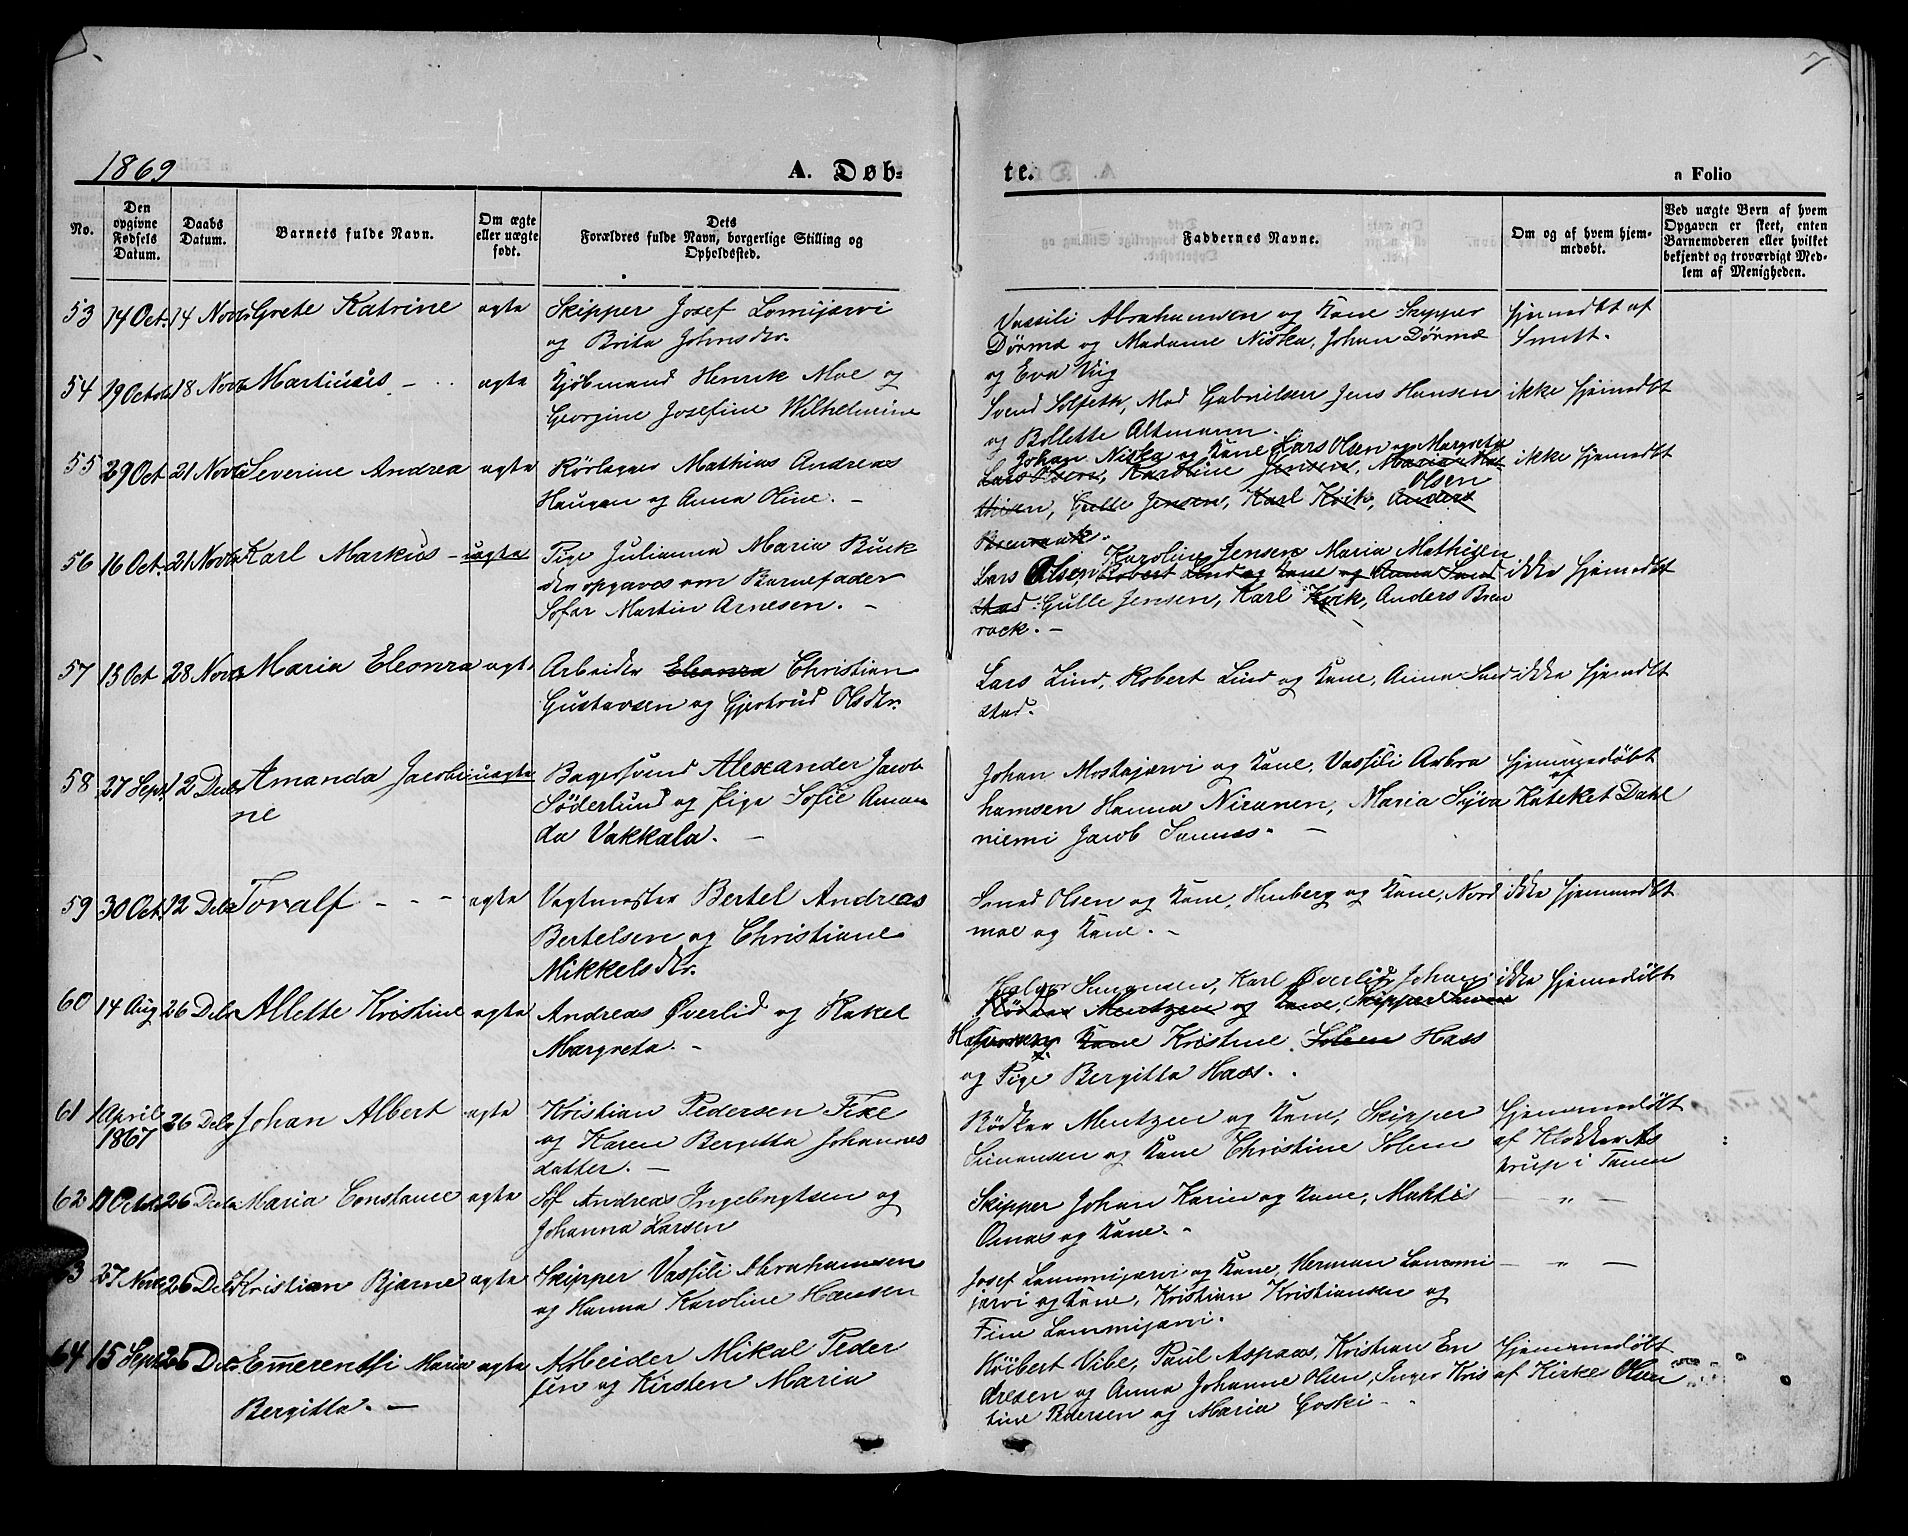 7
1869
A. Døb-
te.
a Folio
No.
Den opgivne Fødsels Datum.
Daabs Datum.
Barnets fulde Navn.
Om ægte eller uægte født.
Dets Forældres fulde Navn, borgerlige Stilling og Opholdssted.
Faddernes Navne.
Om og af hvem hjem-
medøbt.
Ved uægte Børn af hvem
Opgaven er skeet, enten
Barnemoderen eller hvilket
bekjendt og troværdigt Med-
lem af Menigheden.
53 14 Oct. 14 Novb Grete Katrine ægte Skipper Josef Lomijærvi
og Brita Johnsdtr.
Vassili Abrahamsen og Kone Skipper
Dørmæ og Madame Niska, Johan Dørmæ
og Eva Viig
hjemedbt af
Smitt.
54 19 Octob 18 Novb Martinus - ægte Kjøbmand Henrik Moe og
Georgine Josefine Wilhelmine
Svend Solseth, Mad Gabrielsen Jens Hansen
og Bollette Altmann.
ikke hjemedbt
55 29 Oct 21 Novb Severine Andrea ægte Rørlægger Mathias Andreas
Haugan og Anna Oline. -
Johan Niska og Kone Lars Olsen og Margreta
Lars Olsen, Karoline Jensen, Maria Mat
Olsen
thisen, Gulle Jensen, Karl Kvik, Anders
ikke hjemedbt
56 16 Oct. 21 Novb Karl Markus - uægte Pige Julianna Maria Buck
der opgaves om Barnefader
Sofar Martin Arnesen. -
Karoline Jensen Maria Mathisen
Lars Olsen Robert Lind og Kone og Anna Sand
stad: Gulle Jensen, Karl Kvik, Anders Bren
rock. -
ikke hjemedbt
57 15 Oct 28 Novb Maria Eleonora ægte Arbeider Eleonora Christian
Gustavsen og Gjertrud Olsdtr.
Lars Lind, Robert Lind og Kone, Anna Sand
stad.
ikke hjemdbt
58 27 Sept 12 Decb Amanda Jacobi uægte
ne
Bagersvend Alexander Jacob
Søderlund og Pige Sofie Aman
da Vakkala. -
Johan Mostajærvi og Kone, Vassili Aabra
hamsen Hanna Niranen, Maria Syva
niemi Jacob Sannæs. -
hjemmedøbt
af
Kateket Dahl
59 30 Oct. 12 Decb Toralf - - - ægte Vagtmester Bertel Andreas
Bertelsen og Christiane
Mikkelsdtr.
Olsen og Kone, og Kone, Nord
moe og Kone. -
ikke hjemmedbt
60 14 Aug 26 Decb Allette Kristine ægte Andreas Øverlid og Rakel
Margreta. -
Simonsen, Karl Øverlid, Johan
Bødker Mentzen og Kone, Skipper
Kone Kristine Solem Hass
og Pige Bergitta Hass.
ikke hjemedøbt
61 1 April
1867
26 Decb Johan Albert ægte Kristian Pedersen Fixe
og Karen Bergitta Johannes
datter. -
Bødker Mentzen og Kone, Skipper
Simonsen og Kone Christine Solem
hjemmedøbt
af Klokker As
trup i Tanen
62 11 Octb. 26 Decb Maria Constance ægte Sof Andreas Ingebrigtsen og
Johanna Larsen
Skipper Johan Karin og Kone, Mahtis
Omas og Kone. -
- " -
63 27 Novb 26 Decb Kristian Bjarne ægte Skipper Vassili Abrahamsen
og Hanna Karoline Hansen
Josef Lammijærvi og Kone, Herman Lammi
jærvi og Kone, Kristian Kristiansen og
Fine Lammijærvi.
- " -
64 15 Sept 26 Decb Emerentsi Maria ægte
Bergitta. -
Arbeider Mikal Peder
sen og Kirsten Maria
Robert Vibe, Paul Aspaas, Kristian En
dresen og Anna Johanne Olsen, Inger Kris
tine Pedersen og Maria Goski -
hjemmedøbt
af Kirke Olsen